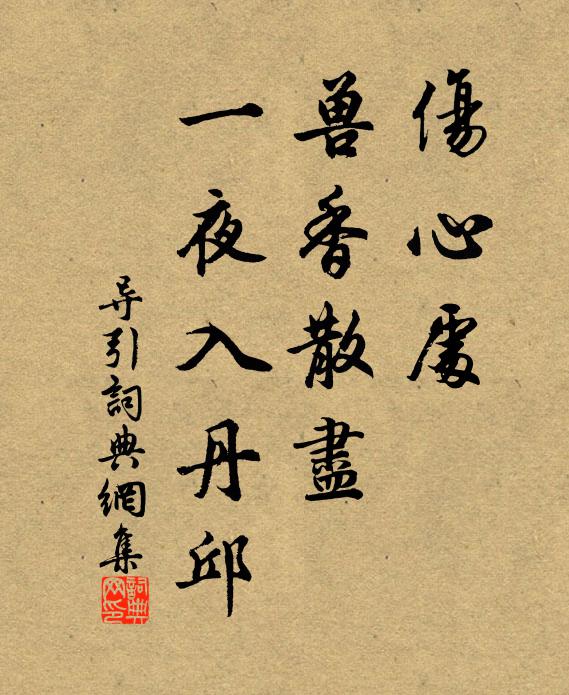 傷心處
兽香散盡
一夜入丹邱
导引詞典網集
詞典
网印